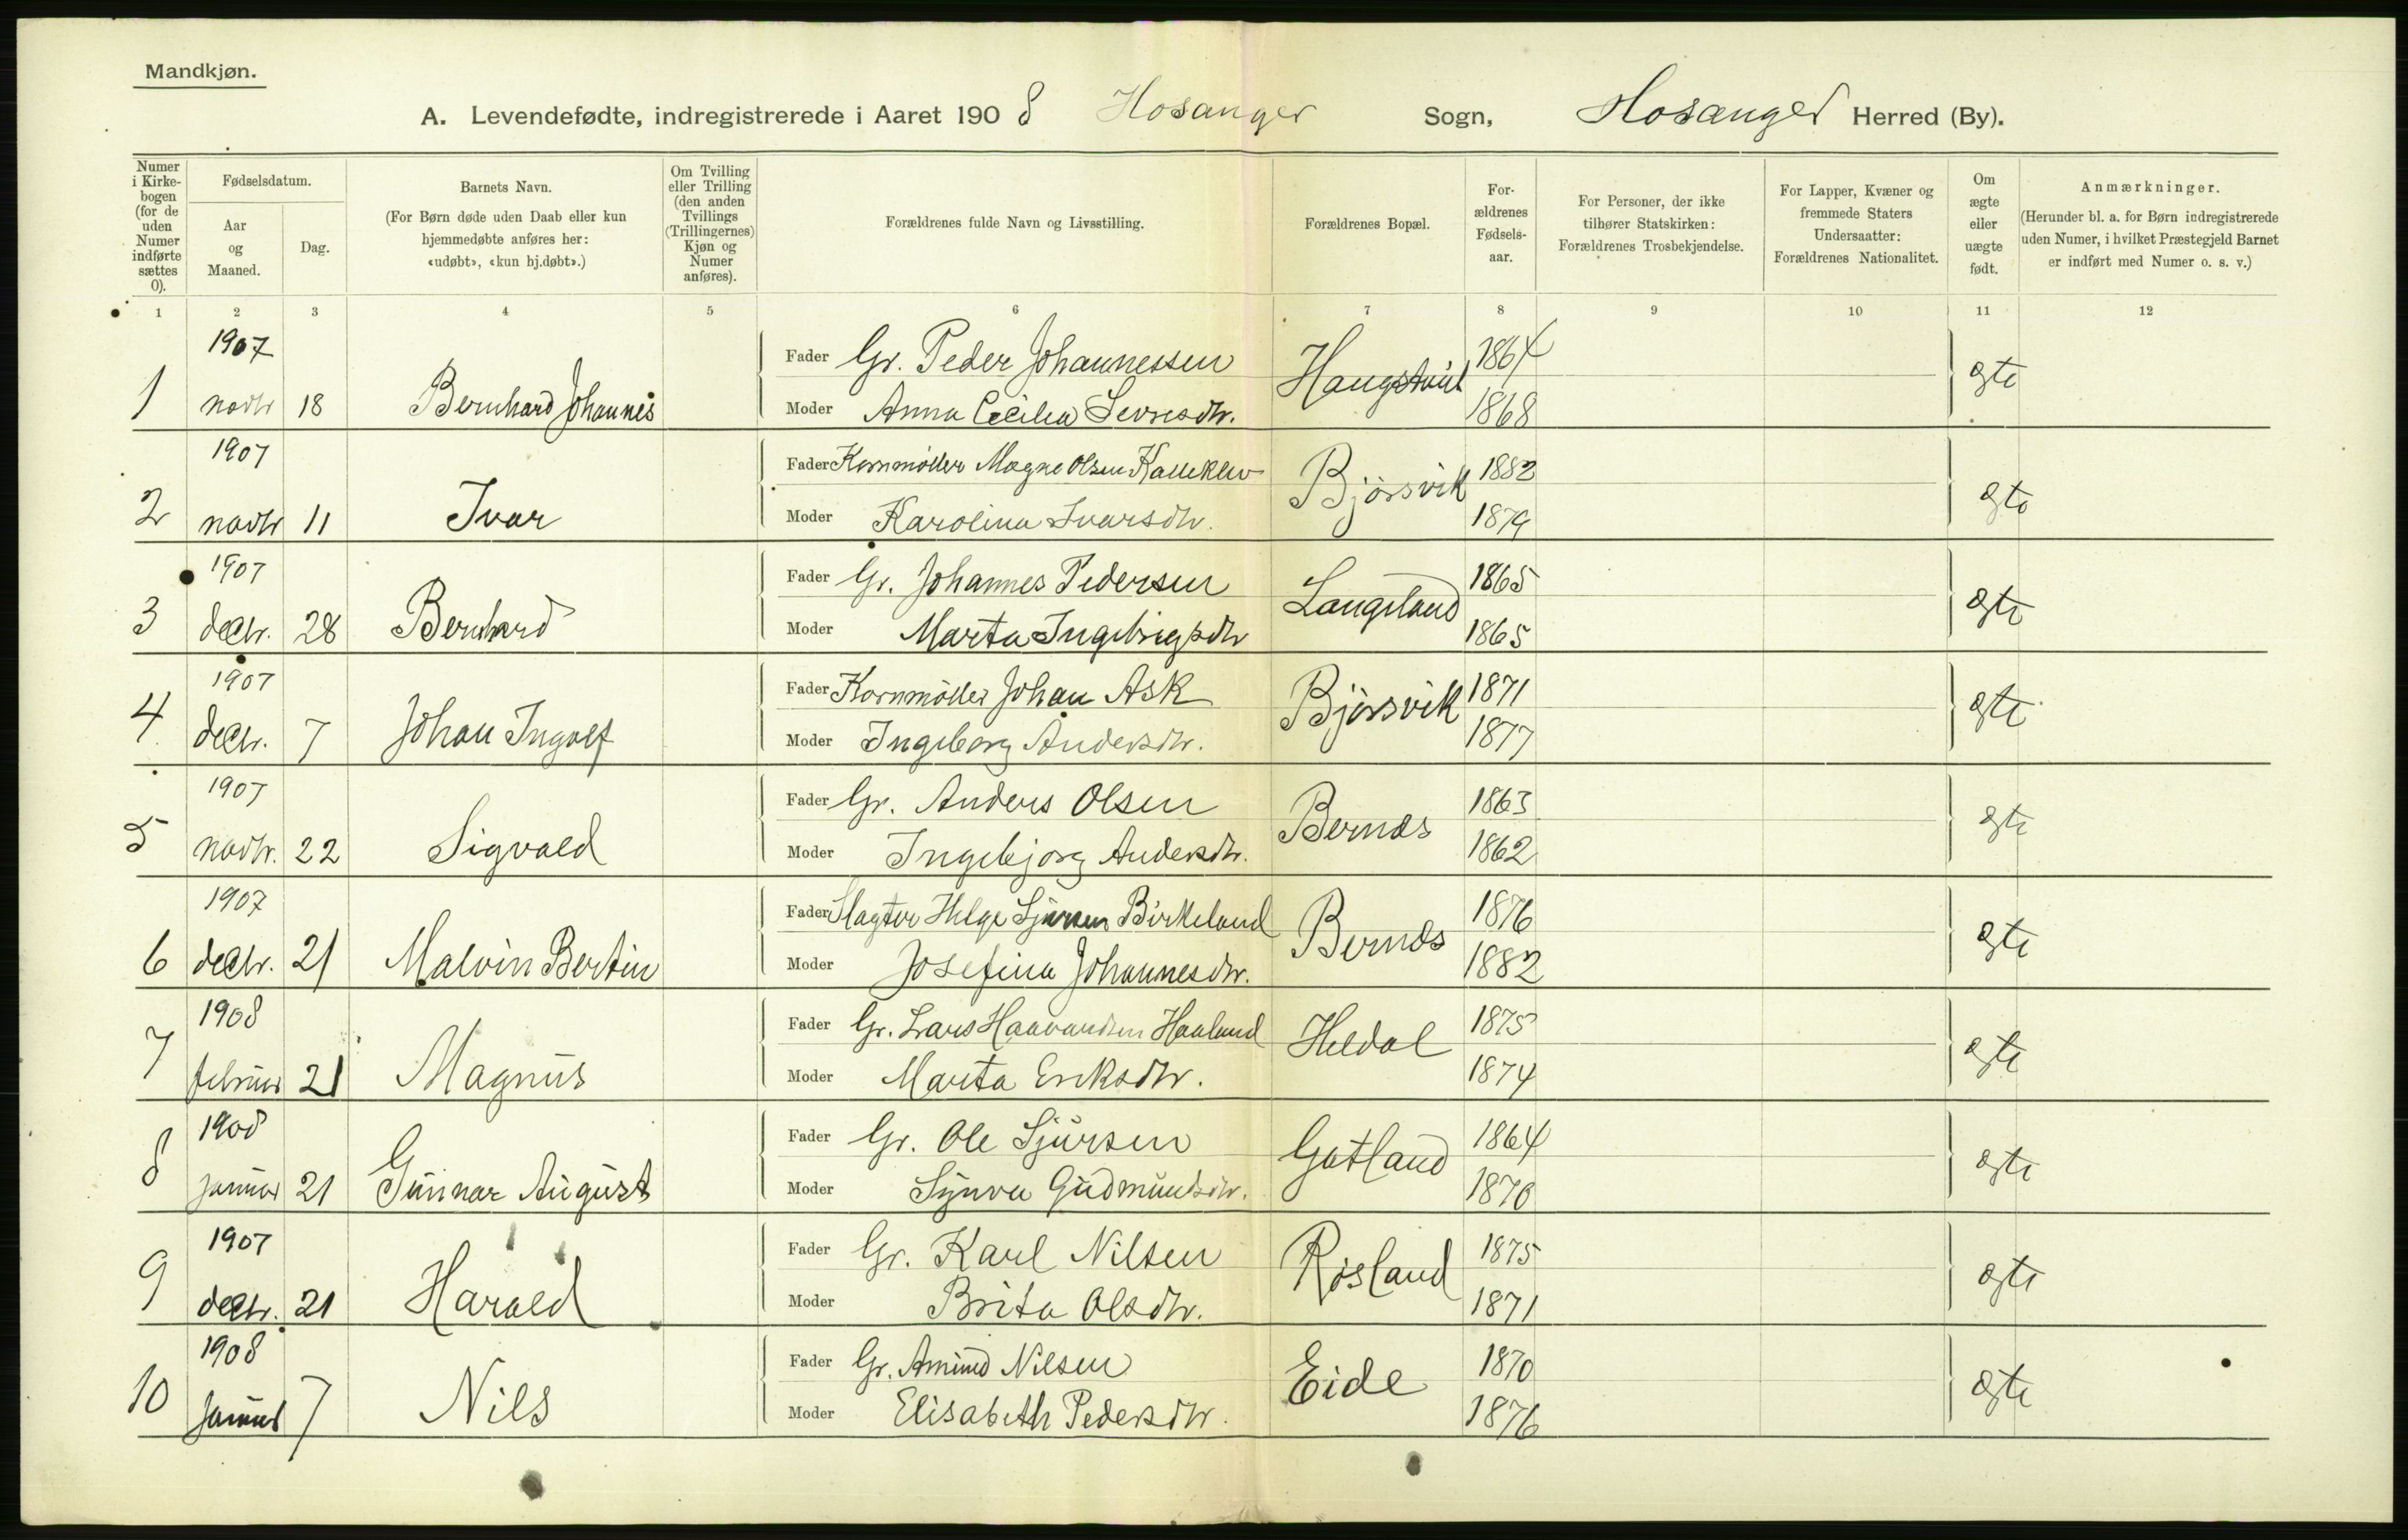 Mandkjøn.
A. Levendefødte, indregistrerede i Aaret 1908 Hosanger Sogn, Hosanger Herred (By).
Numer i Kirke-bogen (for de uden Numer indførte sættes 0).
Fødselsdatum.
Aar og Maaned.
Dag.
Barnets Navn.
(For Børn døde uden Daab eller kun hjemmedøbte anføres her: «udøbt», «kun hj.døbt».)
Om Tvilling eller Trilling (den anden Tvillings (Trillingernes) Kjøn og Numer anføres).
Forældrenes fulde Navn og Livsstilling.
Forældrenes Bopæl.
For-ældrenes Fødsels-aar.
For Personer, der ikke tilhører Statskirken: Forældrenes Trosbekjendelse.
For Lapper, Kvæner og fremmede Staters Undersaatter: Forældrenes Nationalitet.
Om ægte eller uægte født.
Anmærkninger.
(Herunder bl. a. for Børn indregistrerede uden Numer, i hvilket Præstegjeld Barnet er indført med Numer o. s. v.)
1 2 3 4 5 6 7 8 9 10 11 12
1907 Fader Gr. Peder Johannessen 1864
1 novbr 18 Bernhard Johannes Moder Anna Cecilia 1868 ægte
1907 Fader Kornmöller Magne Olsen Kalleklev Bjørsvik 1882
2 novbr 11 Ivar Moder Karolina Ivarsdtr. 1879 ægte
1907 Fader Gr. Johannes Pedersen Langeland 1865
3 decbr. 28 Bernhard Moder Marta Ingebrigtsdtr 1865 ægte
1907 Fader Kornmöller Johan Ask Bjørsvik 1871
4 decbr. 7 Johan Ingolf Moder Ingeborg Andersdtr. 1877 ægte
1907 Fader Gr. Anders Olsen Bernæs 1863
5 novbr. 22 Sigvald Moder Ingebjorg Andersdtr. 1862 ægte
1907 Fader Slagter Helge Sjursen Birkeland Bernæs 1876
6 decbr. 21 Malvin Bertin Moder Josefina Johannesdtr. 1882 ægte
1908 Fader Gr. Lars Haavardsen Haaland Heldal 1875
7 februar 21 Magnus Moder Marta Eriksdtr. 1874 ægte
1908 Fader Gr. Ole Sjursen Gotland 1864
8 januar 21 Gunnar August Moder Synva Gudmundsdtr. 1870 ægte
1907 Fader Gr. Karl Nilsen Røsland 1875
9 decbr. 21 Harald Moder Brita Olsdtr. 1871 ægte
1908 Fader Gr. Amund Nilsen Eide 1870
10 januar 7 Nils Moder Elisabeth Pedersdtr. 1876 ægte